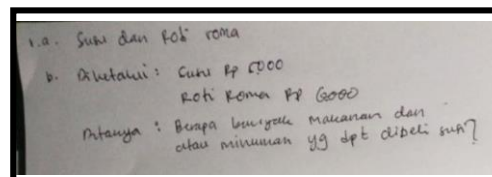 1.a. Susu dan Roti roma
b. Diketahui : Susu Rp 5000
Roti Roma Rp 6000
Ditanya : Berapa banyak makanan dan
atau minuman yg dpt dibeli